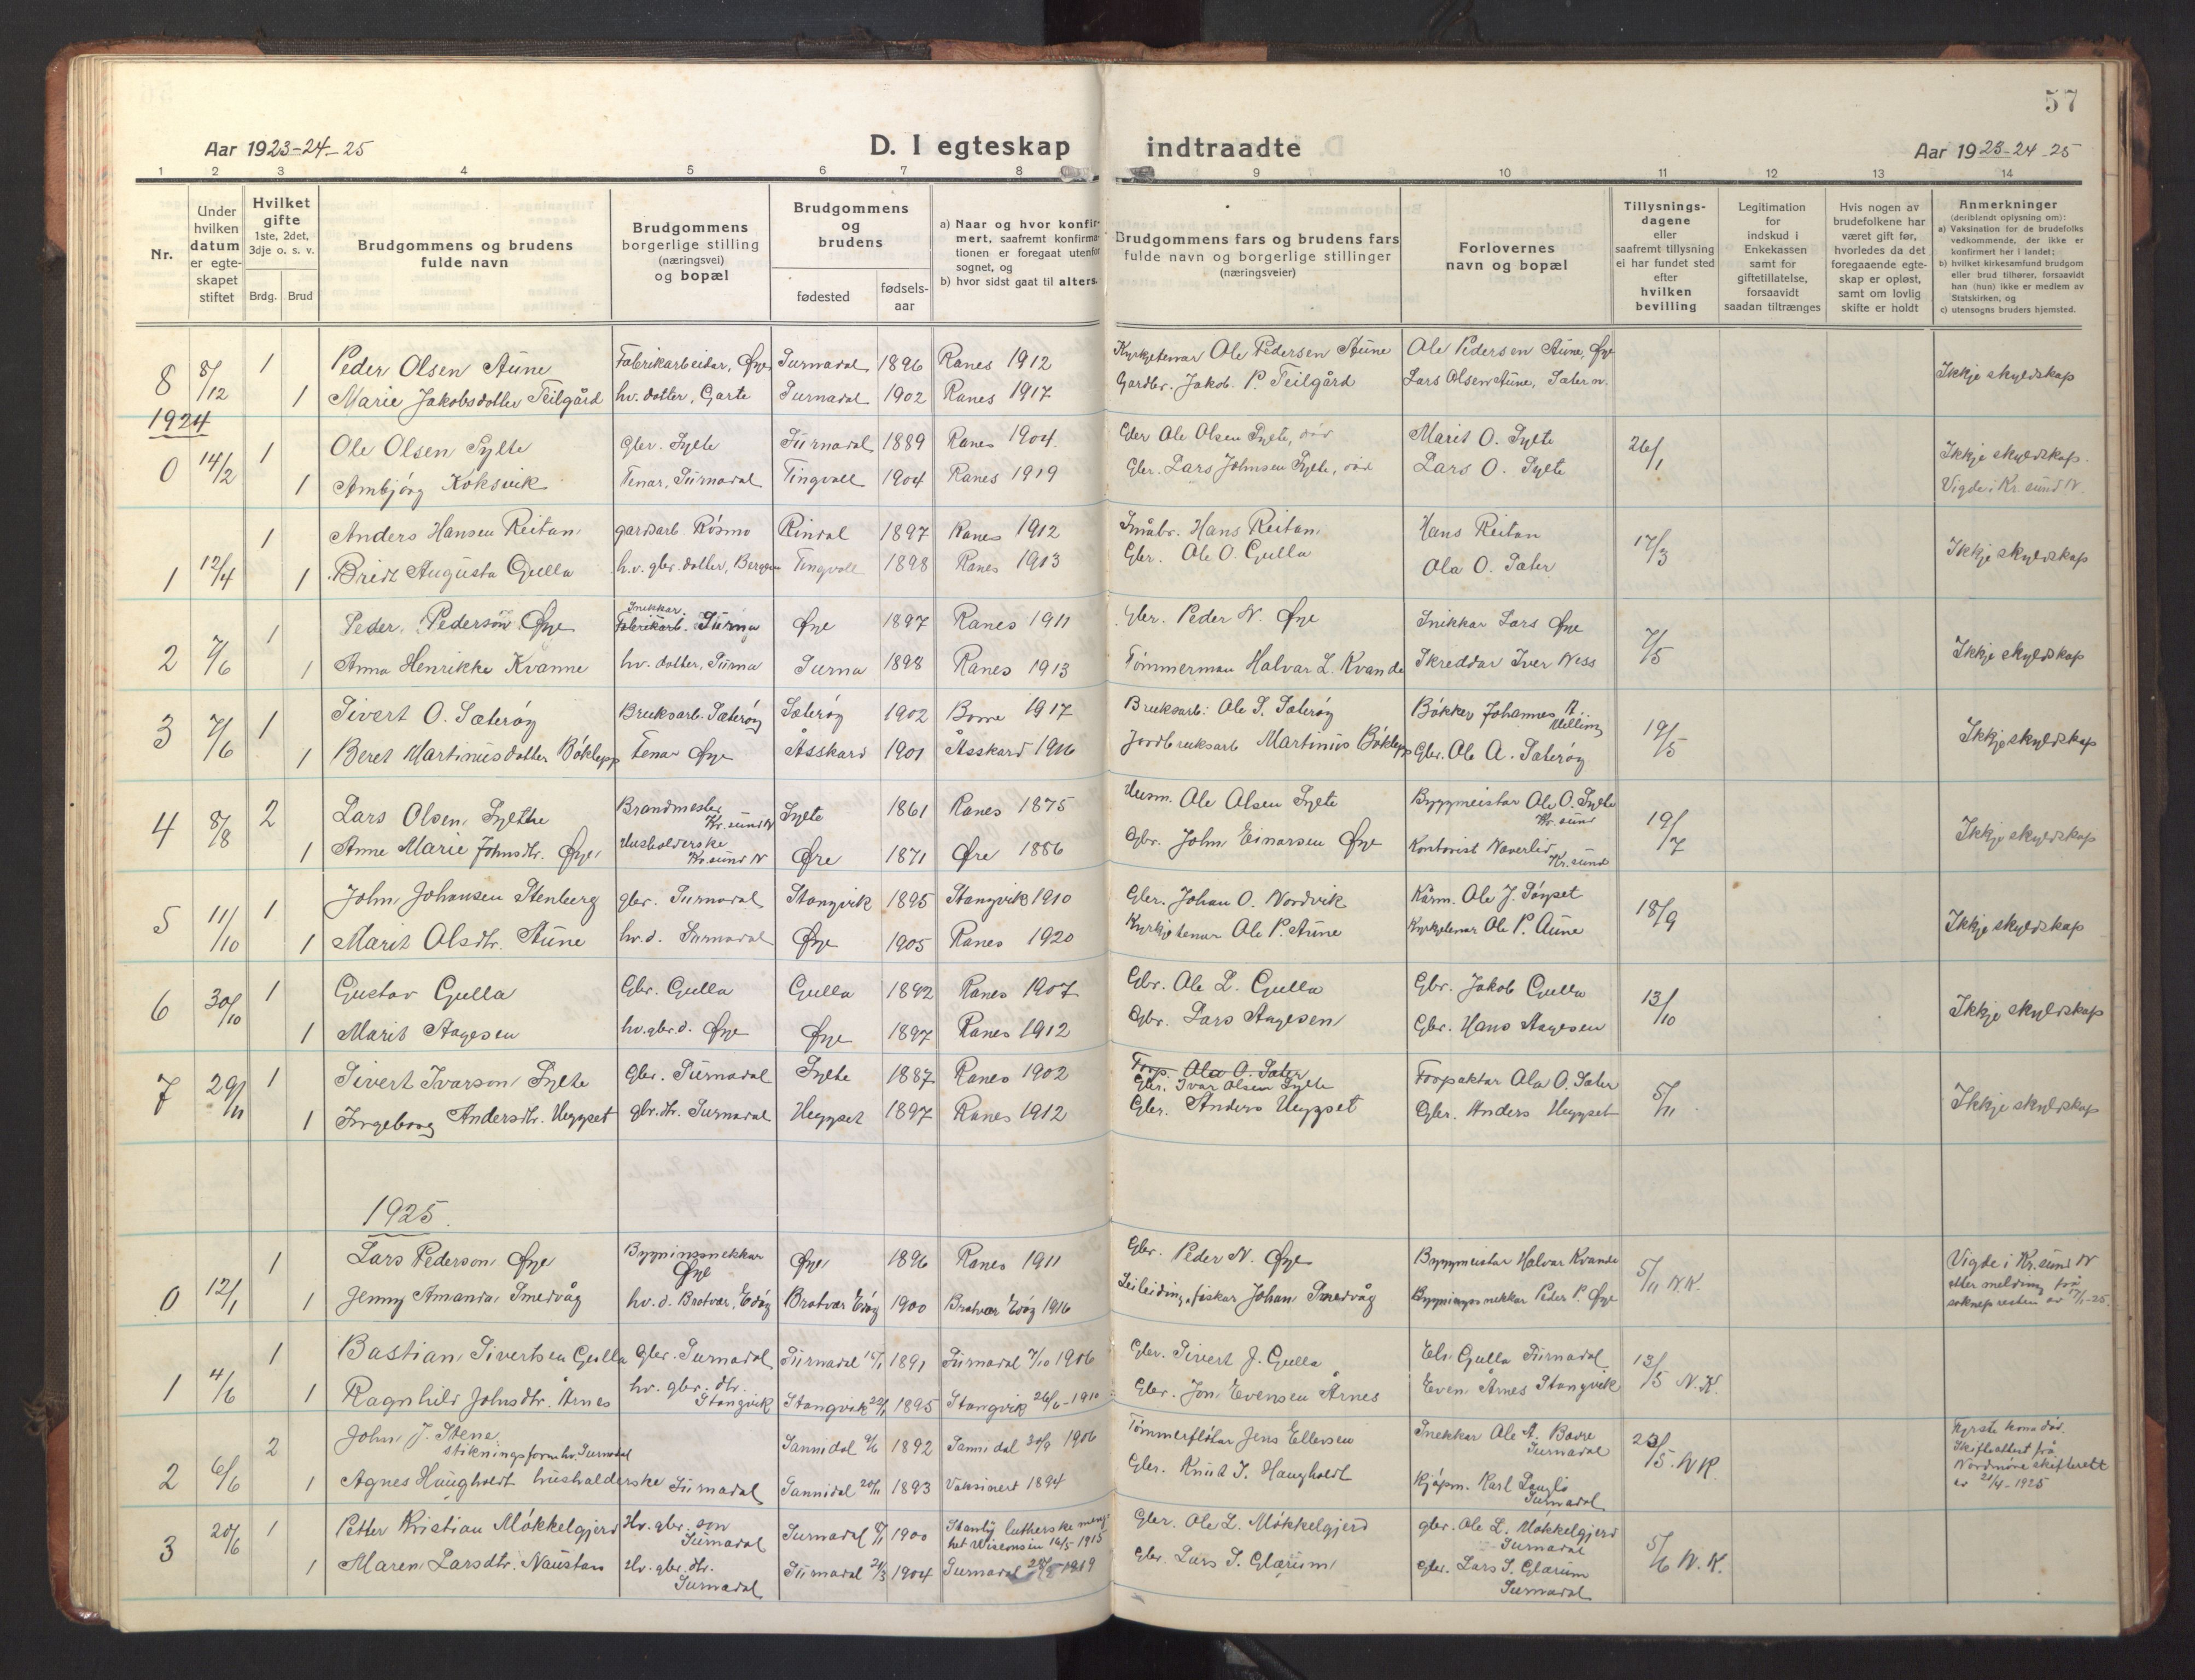 57
Aar 1923-24-25
D. I egteskap indtraadte
Aar 1923-24-25
1 2 3 4 5 6 7 8 9 10 11 12 13 14
Nr.
Under hvilken datum er egteskapet stiftet
Hvilket gifte 1ste, 2det, 3dje o. s. v.
Brdg. Brud
Brudgommens og brudens fulde navn
Brudgommens borgerlige stilling (næringsvei) og bopæl
Brudgommens og brudens
fødested
fødsels-aar
a) Naar og hvor konfirmert, saafremt konfirmationen er foregaat utenfor sognet, og
b) hvor sidst gaat til alters.
Brudgommens fars og brudens fars fulde navn og borgerlige stillinger (næringsveier)
Forlovernes navn og bopæl
Tillysningsdagene eller saafremt tillysning ei har fundet sted efter hvilken bevilling
Legitimation for indskud i Enkekassen samt for giftetillatelse, forsaavidt saadan tiltrænges
Hvis nogen av brudefolkene har været gift før, hvorledes da det foregaaende egteskap er opløst, samt om lovlig skifte er holdt
Anmerkninger (deriblendt oplysning om):
a) Vaksination for de brudefolks vedkommende, der ikke er konfirmert her i landet;
b) hvilket kirkesamfund brudgom eller brud tilhører, forsaavidt han (hun) ikke er medlem av Statskirken, og
c) utensogns bruders hjemsted.
8 8/12 1 Peder Olsen Aune Fabrikarbeidar, Øye Surnadal 1896 Ranes 1912 Kyrkjetenar Ole Pedersen Aune Ole Pedersen Aune, Øye Ikkje skyldskap
1 Marie Jakobsdotter Teilgård hv. dotter, Garte Surnadal 1902 Ranes 1917 Gardbr. Jakob P. Teilgård Lars Olsen Aune, Sæter
1924
0 14/2 1 Ole Olsen Sylte Gbr. Sylte Surnadal 1889 Ranes 1904 Gbr Ole Olsen Sylte, død Marit O. Sylte 26/1 Ikkje skyldskap.
1 Ambjørg Koksvik Tenar, Surnadal Tingvoll 1904 Ranes 1919 Gbr. Lars Johnsen Sylte, død Lars O. Sylte Vigde i Kr.sund N.
1 12/4 1 Anders Hansen Reitan gardsarb. Røsmo Rindal 1897 Ranes 1912 Småbr. Hans Reitan Hans Reitan 17/3 Ikkje skyldskap
1 Brit Augusta Gulla h.v. gbr. dotter, Bergem Tingvoll 1898 Ranes 1913 Gbr. Ole O. Gulla Ola O. Sæter
2 7/6 1 Peder Pederson Øye Snikkar Fabrikarb. Surna Øye 1897 Ranes 1911 Gbr. Peder N. Øye Snikkar Lars Øye 7/5 Ikkje skyldskap
1 Anna Henrikke Kvanne hv. dotter, Surna Surna 1898 Ranes 1913 Tømmerman Halvar L. Kvande Skreddar Iver Ness
3 7/6 1 Sivert O. Sæterøy Bruksarb. Sæterøy Sæterøy 1902 Bøvre 1917 Bruksarb. Ole S. Sæterøy Bøkker Johannes A. 19/5 Ikkje skyldskap
1 Beret Martinusdotter Bøklepp Tenar Øye Åsskard 1901 Åsskard 1916 Jordbruksarb Martinus Bøklepp Gbr. Ole A. Sæterøy
4 8/8 2 Lars Olsen Sylthe Brandmester Kr.sund N Sylte 1861 Ranes 1875 Husm. Ole Olsen Sylte Byggmeistar Ole O. Sylte Kr.sund 19/7 Ikkje skyldskap
1 Anne Marie Johnsdtr. Øye Husholderske Kr.sund N Øre 1871 Øre 1886 Gbr. John Einarsen Øye Kontorist Naverlid Kr.sund
5 11/10 1 John Johansen Stenberg gbr. Surnadal Stangvik 1895 Stangvik 1910 Gbr. Johan O. Nordvik Kårm. Ole J. Søyset 18/9 Ikkje skyldskap
1 Marit Olsdtr. Aune hv.d. Surnadal Øye 1905 Ranes 1920 Kyrkjetenar Ole P. Aune Kyrkjetenar Ole P. Aune
6 30/10 1 Gustav Gulla Gbr. Gulla Gulla 1892 Ranes 1907 Gbr. Ole L. Gulla Gbr. Jakob Gulla 13/10 Ikkje skyldskap
1 Marit Aagesen hv. gbr.d. Øye Øye 1897 Ranes 1912 Gbr. Lars Aagesen Gbr. Hans Aagesen
7 29/11 1 Sivert Ivarson Sylte Gbr. Surnadal Sylte 1887 Ranes 1902 Forp. Ola O. Sæter Gbr. Ivar Olsen Sylte Forpaktar Ola O. Sæter 5/11 Ikkje skyldskap
1 Ingeborg Andersdtr. Heggset gbr.dtr. Surnadal Heggset 1897 Ranes 1912 Gbr. Anders Heggset Gbr. Anders Heggset
1925
0 12/1 1 Lars Pederson Øye Bygningssnekkar Øye Øye 1896 Ranes 1911 Gbr. Peder N. Øye Byggmeistar Halvar Kvande 5/11 N.K. Vigde i Kr.sund N etter melding frå soknepresten av 17/1-25.
1 Jenny Amanda Smedvåg hv.d. Bratvær, Edøy Bratvær Edøy 1900 Bratvær Edøy 1916 Leilending, fiskar Johan Smedvåg Bygningssnekkar Peder P. Øye
1 4/6 1 Bastian Sivertsen Gulla Gbr. Surnadal Surnadal 1891 Surnadal 7/10 1906 Gbr. Sivert J. Gulla Gulla Surnadal 13/5 N.K.
1 Ragnhild Johnsdtr. Årnes hv. gbr. dtr. Stangvik Stangvik 1895 Stangvik 26/6-1910 Gbr. Jon Evensen Årnes Even Årnes Stangvik
2 6/6 2 John J. Stene stikningsformhv. Surnadal Sannidal 9/6 1892 Sannidal 30/9 1906 Tømmerfløtar Jens Ellersen Snekkar Ole A. Bøvre Surnadal 23/5. N.K. Fyrste kona død. Skifteattest frå Nordmøre skifterett av 21/4-1925
1 Agnes Haugholdt husholderske Surnadal Sannidal 20/11 1893 Vaksinert 1894 Gbr. Knut T. Haugholdt Kjøpm. Karl Langlo Surnadal
3 20/6 1 Petter Kristian Møkkelgjerd Hv. gbr. son Surnadal Surnadal 1900 Stanly lutherske menighet Wisconsin 16/5-1915 Gbr. Ole L. Møkkelgjerd gbr. Ole L. Møkkelgjerd Surnadal 5/6 N.K.
1 Maren Larsdtr. Naustan Hv. gbr. dtr. Surnadal Surnadal 21/3 1904 Surnadal 1919 Gbr. Lars S. Glærum gbr. Lars S. Glærum Surnadal